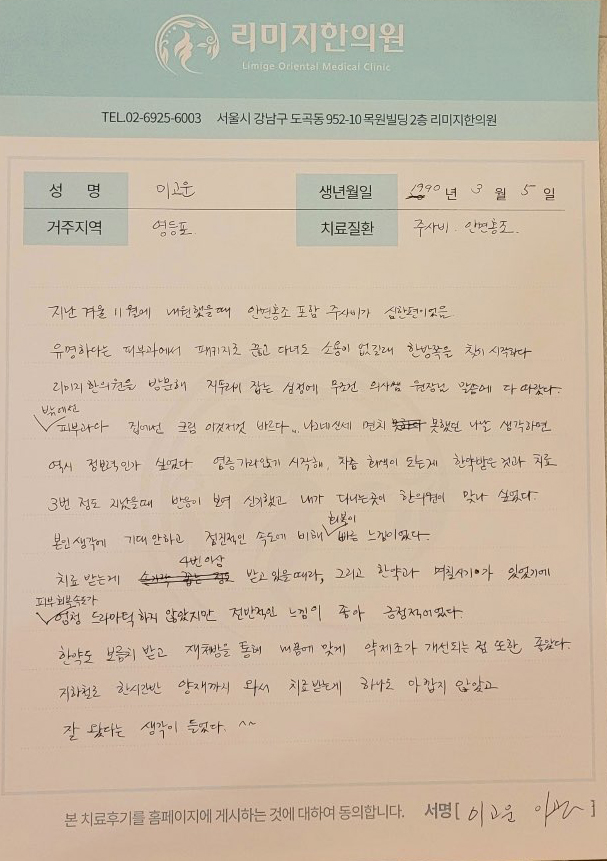 리미지한의원
Limige Oriental Medical Clinic
TEL.02-6925-6003 서울시 강남구 도곡동 952-10 목원빌딩 2층 리미지한의원
성 명 이고운 생년월일 1990 년 3 월 5 일
거주지역 영등포 치료질환 주사비. 안면홍조.
지난 겨울 11월에 내원했을때 안면홍조 포함 주사비가 심한편이었음
유명하다는 피부과에서 패키지로 끊고 다녀도 소용이 없길래 한방쪽을 찾기 시작하다
리미지한의원을 방문해 지푸라기 잡는 심정에 무조건 의사쌤 원장님 말씀에 다 따랐다.
밖에선
피부과와 집에선 크림 이것저것 바르다 .. 나그네신세 면치 못했던 나날 생각하면
역시 정보력인가 싶었다 염증가라앉기 시작해, 차츰 화색이 도는게 한약받은것과 치료
3번 정도 지났을때 반응이 보여 신기했고 내가 다니는곳이 한의원이 맞나 싶었다.
회복이
본인생각에 기대안하고 점진적인 속도에 비해 빠른 느낌이었다.
4번이상
치료 받는게 받고 있을때라, 그리고 한약과 며칠시기가 있었기에
피부회복속도가
엄청 드라마틱 하지 않았지만 전반적인 느낌이 좋아 긍정적이었다.
한약도 보름치 받고 재처방을 통해 내몸에 맞게 약제조가 개선되는 점 또한 좋았다.
지하철로 한시간반 양재까지 와서 치료받는게 하나도 아깝지 않았고
잘 왔다는 생각이 들었다. ^^
본 치료후기를 홈페이지에 게시하는 것에 대하여 동의합니다. 서명 [ 이고운 ]